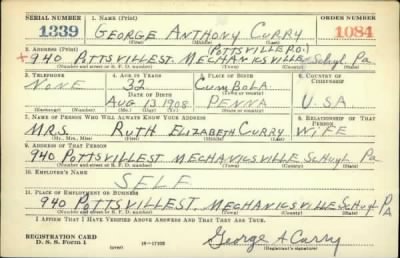 SERIAL NUMBER 1. NAME (Print) ORDER NUMBER
1339 GEORGE ANTHONY CURRY 1084
(First) (Middle) (Last)
2. ADDRESS (Print) POTTSVILLE P.O.)
X 940 POTTSVILLE ST. MECHANICSVILLE Schuyl. Pa
(Number and street or R. F. D. number) (Town) (County) (State)
3. TELEPHONE 4. AGE IN YEARS 5. PLACE OF BIRTH 6. COUNTRY OF CITIZENSHIP
NONE 32 CUMBOLA
DATE OF BIRTH (Town or county)
AUG 13 1908 PENNA U.S.A
(Exchange) (Number) (Mo.) (Day) (Yr.) (State or country)
7. NAME OF PERSON WHO WILL ALWAYS KNOW YOUR ADDRESS 8. RELATIONSHIP OF THAT PERSON
MRS. RUTH ELIZABETH CURRY WIFE
(Mr., Mrs., Miss) (First) (Middle) (Last)
9. ADDRESS OF THAT PERSON
940 POTTSVILLE ST. MECHANICSVILLE Schuyl Pa
(Number and street or R. F. D. number) (Town) (County) (State)
10. EMPLOYER'S NAME
SELF
11. PLACE OF EMPLOYMENT OR BUSINESS
940 POTTSVILLE ST. MECHANICSVILLE Schuyl PA
(Number and street or R. F. D. number) (Town) (County) (State)
I AFFIRM THAT I HAVE VERIFIED ABOVE ANSWERS AND THAT THEY ARE TRUE.
REGISTRATION CARD
D. S. S. Form 1 (over) George A Curry
(Registrant's signature)